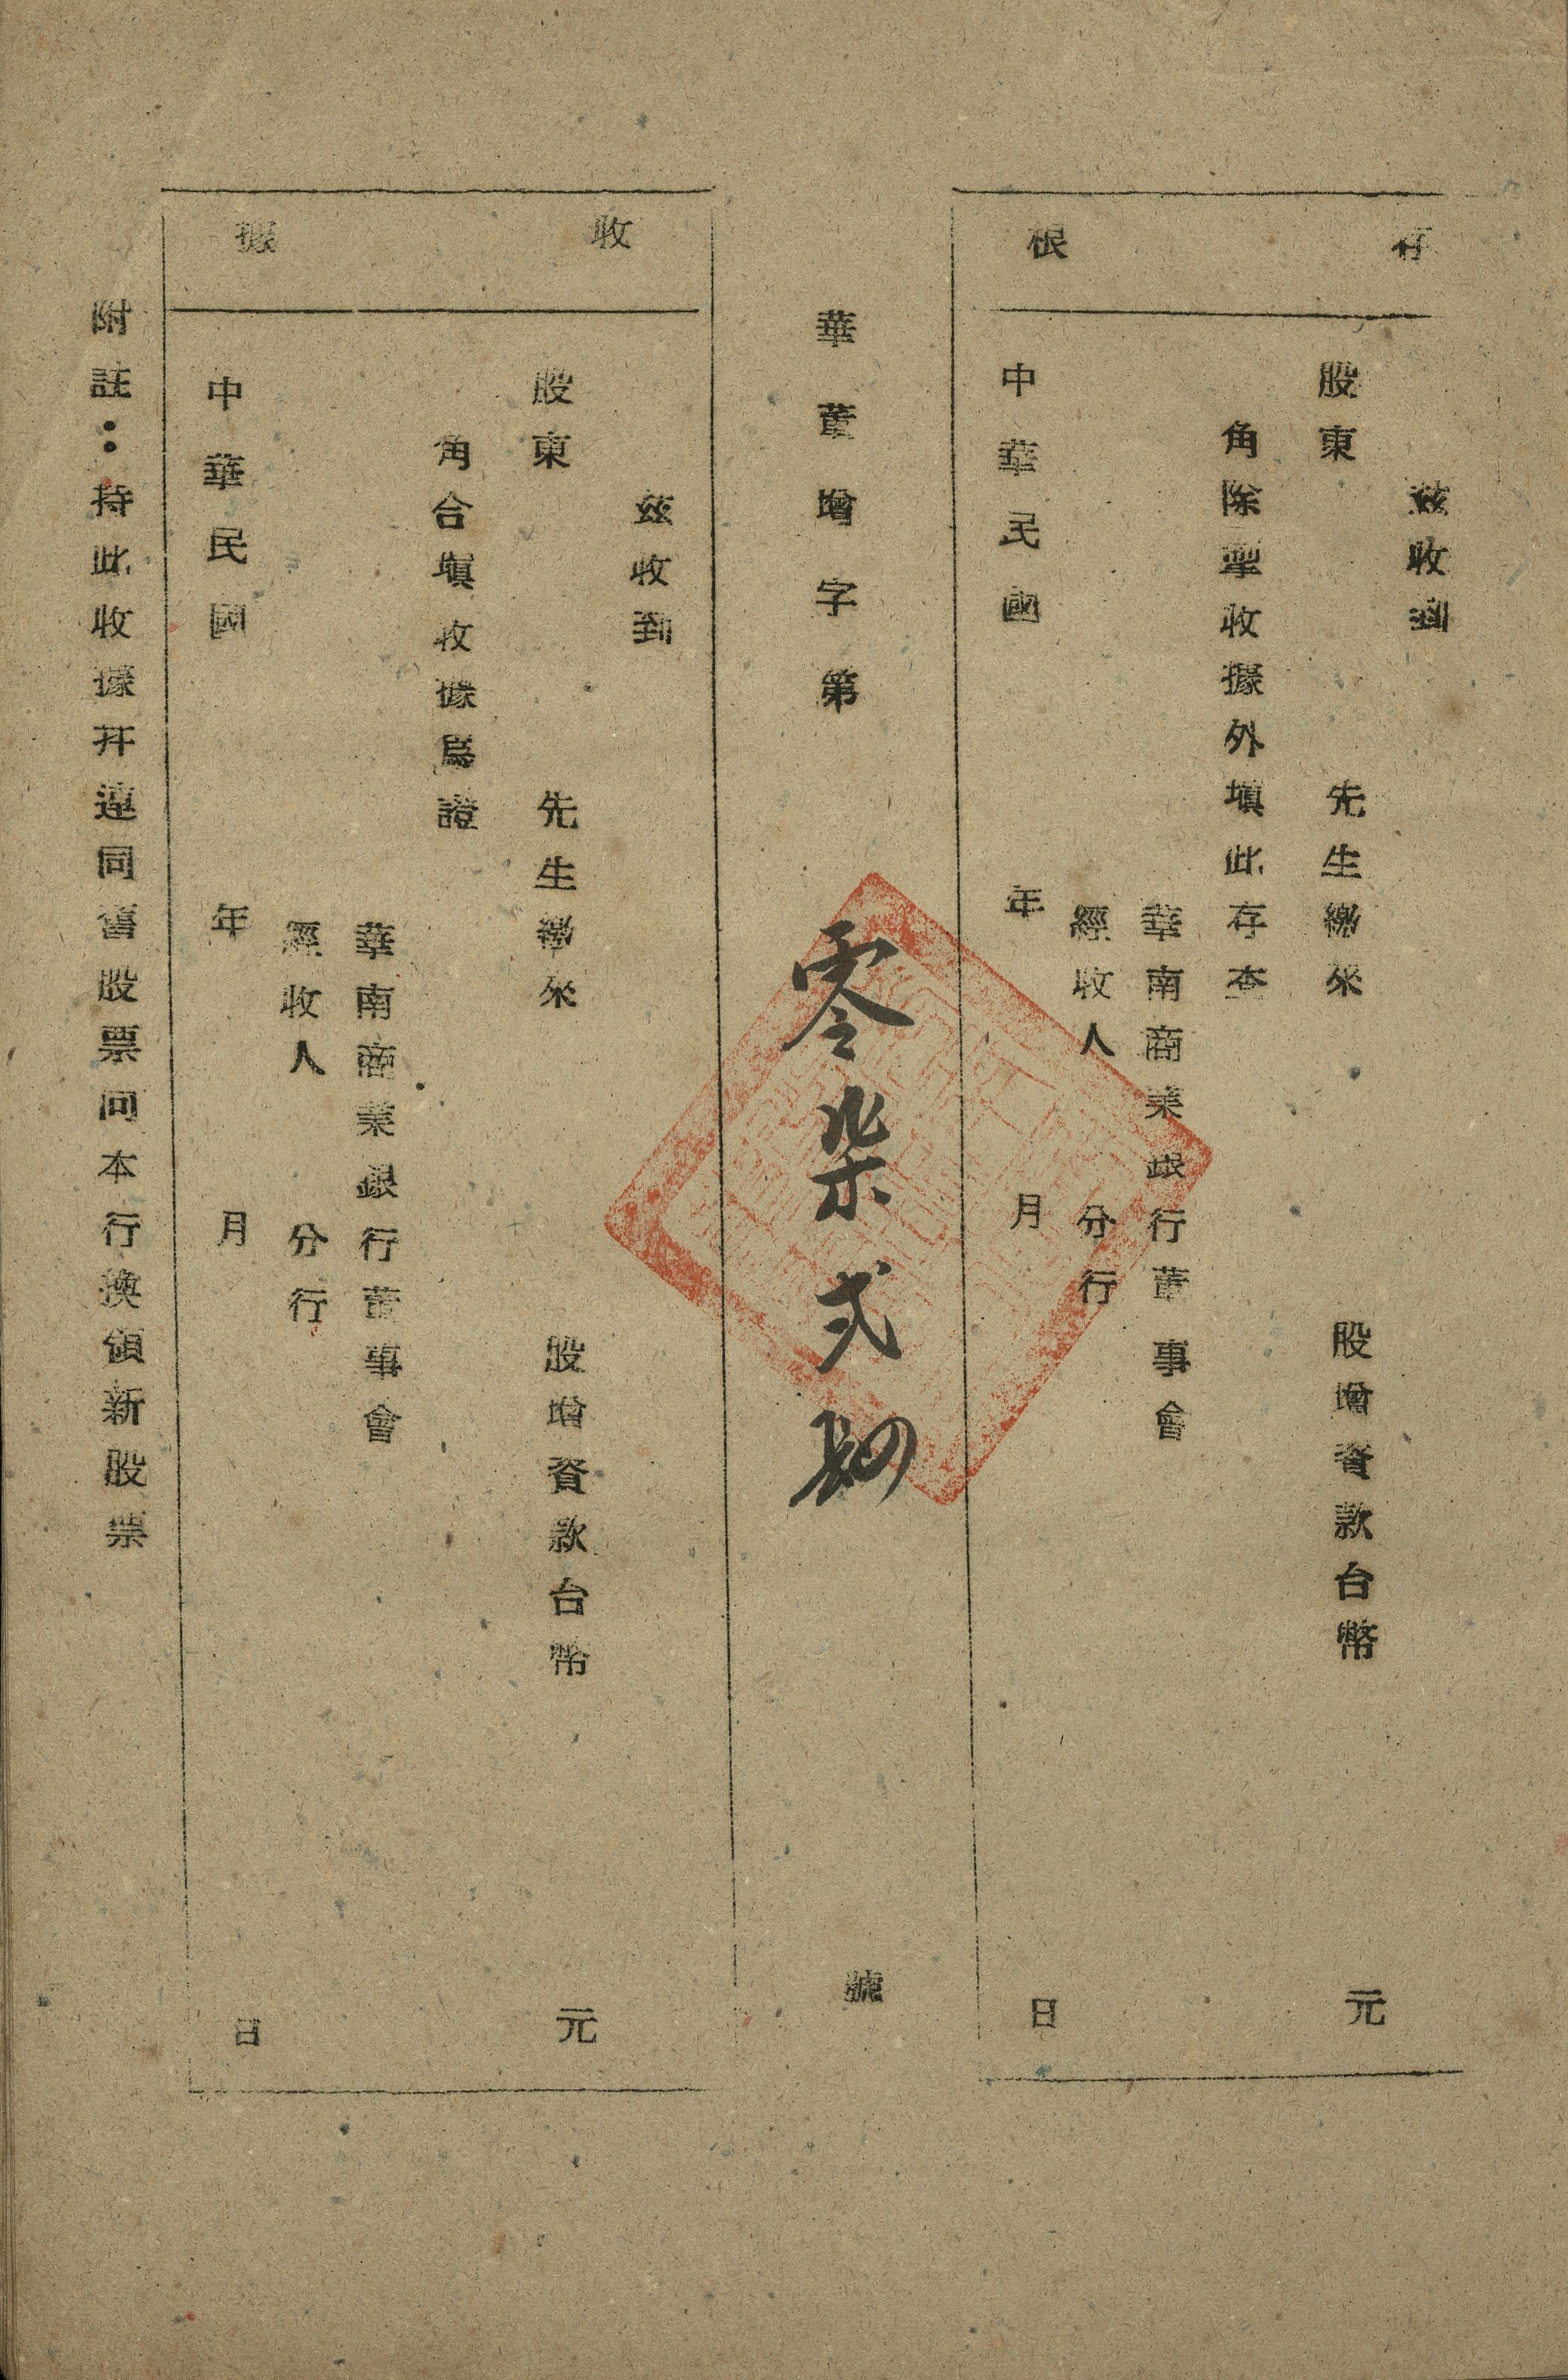 存根
茲收到
股東 先生繳來 股增資款台幣 元
角除掣收據外塡此存查
華南商業銀行董事會
經收人 分行
中華民國 年 月 日
華董增字第 零柒弍肆 號
收據
茲收到
股東 先生繳來 股增資款台幣 元
角合塡收據爲證
華南商業銀行董事會
經收人 分行
中華民國 年 月 日
附註：持此收據幷連同舊股票向本行換領新股票